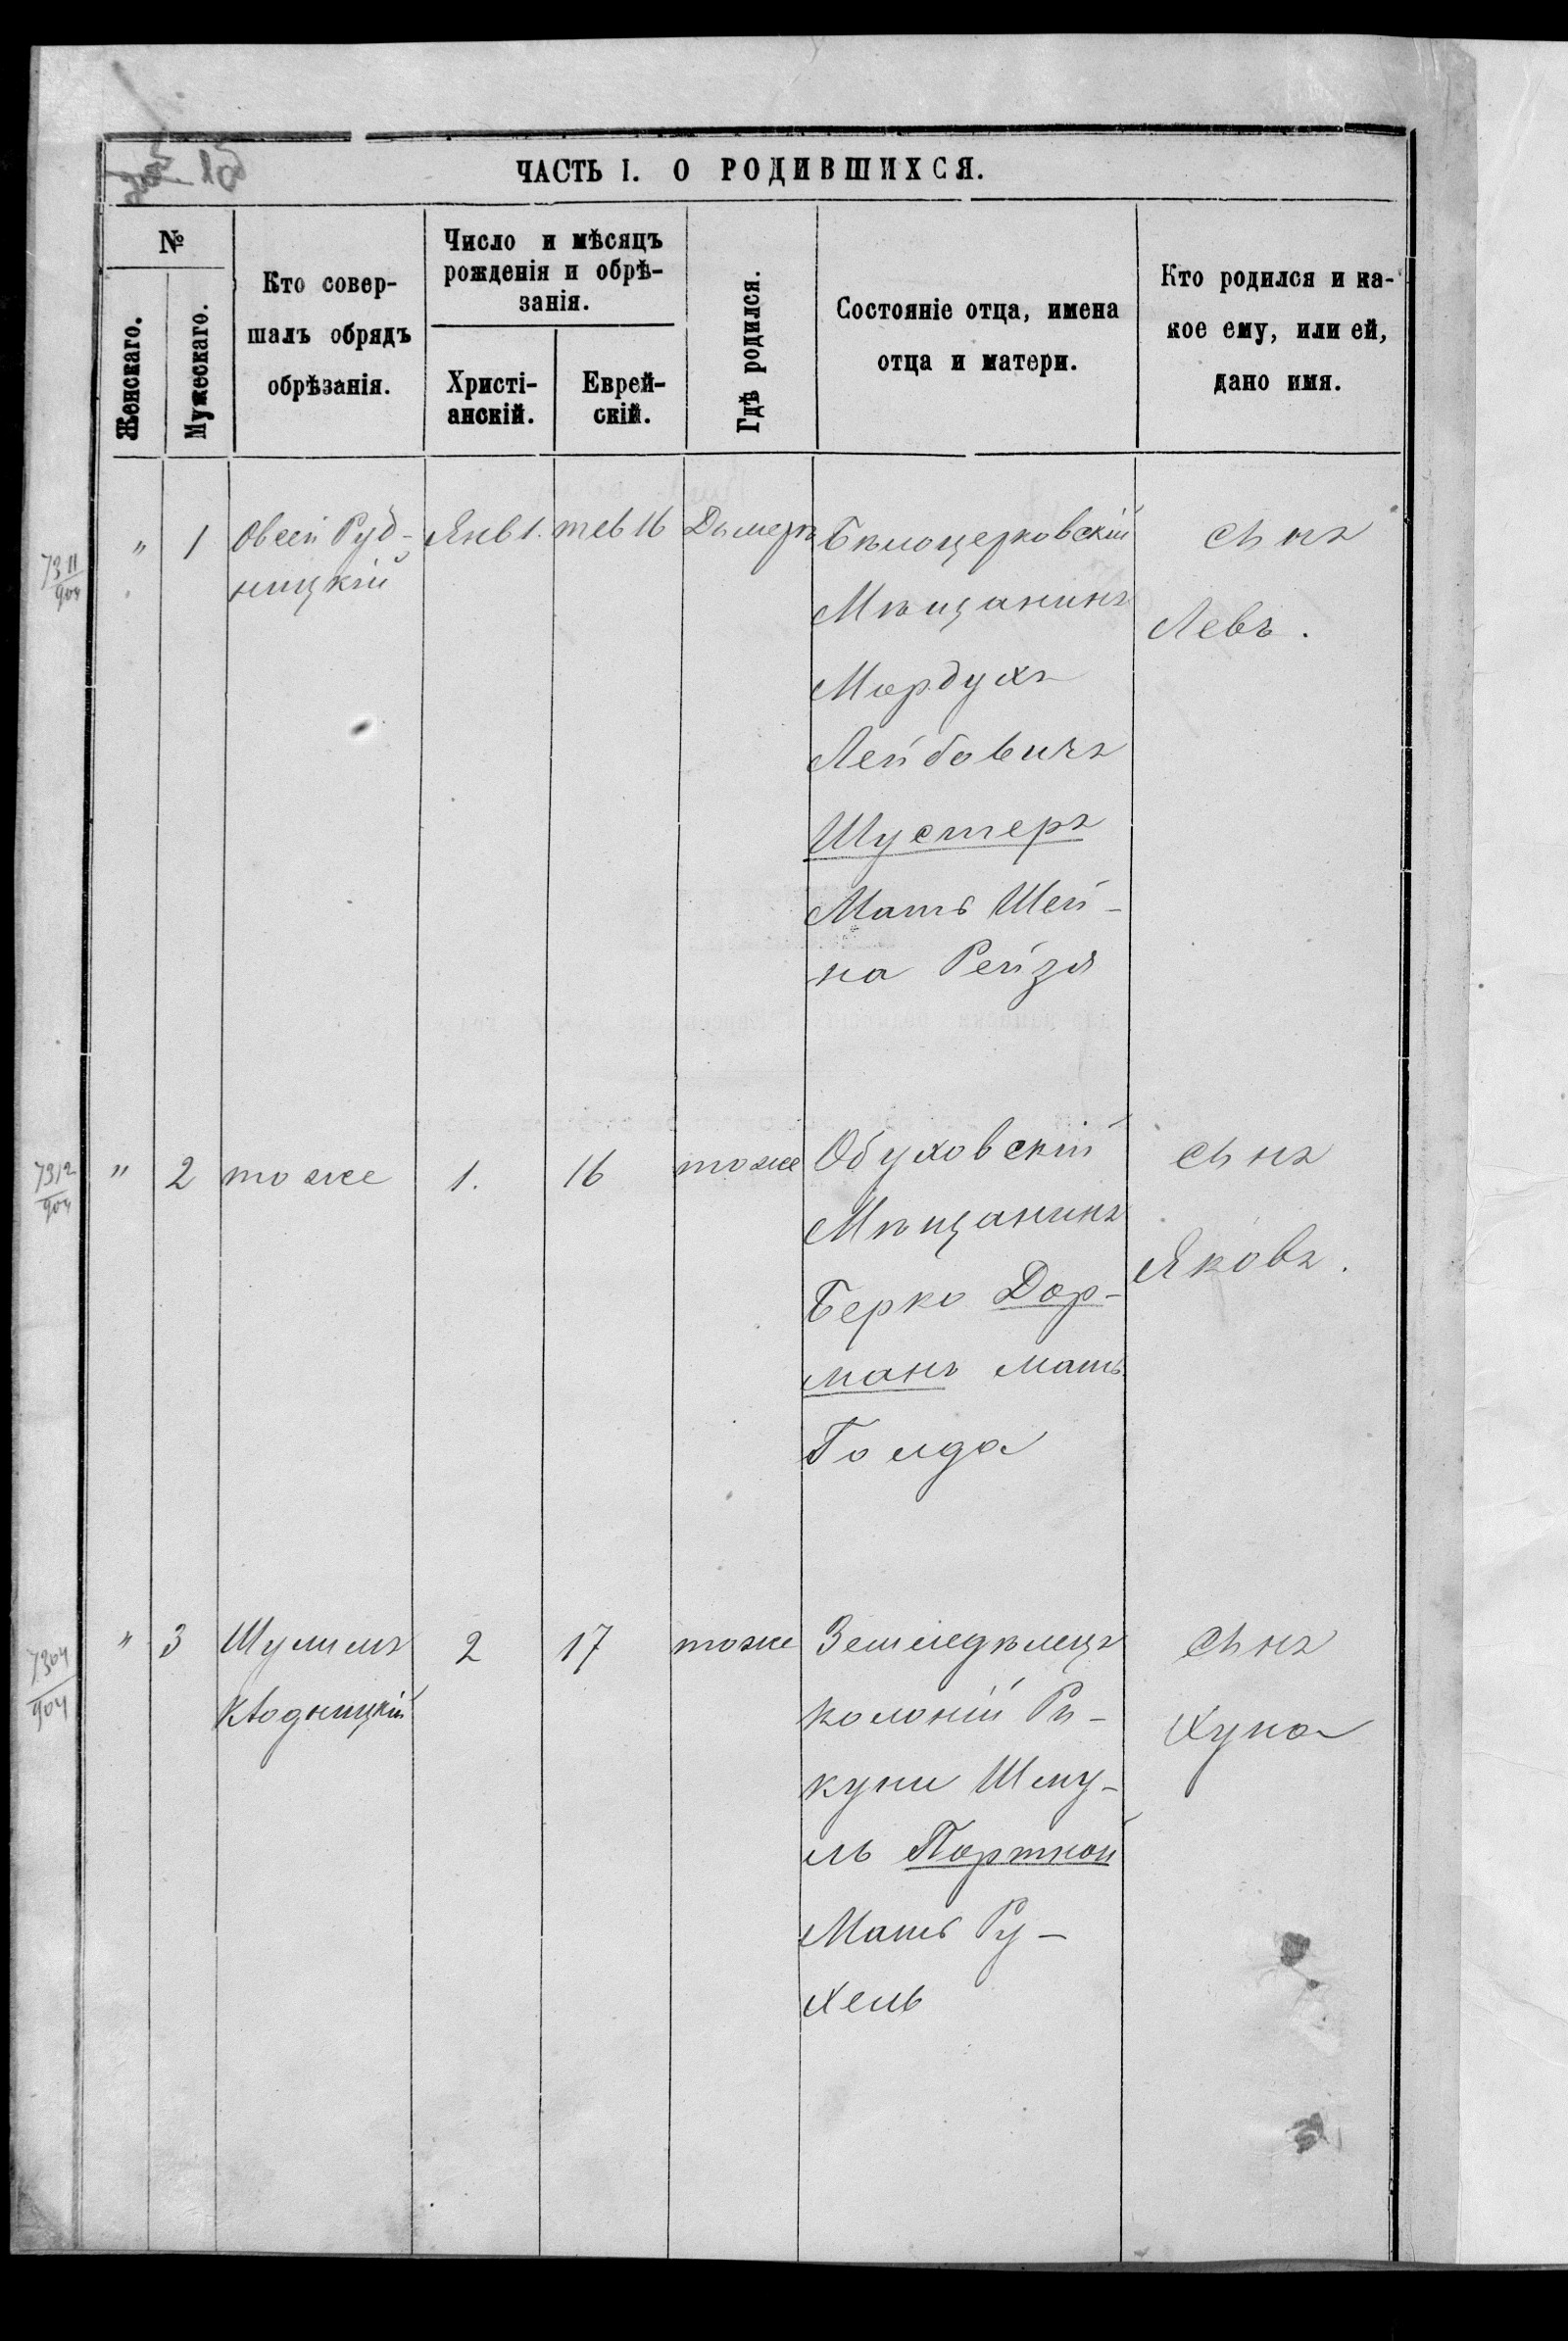 ЧАСТЬ I. О РОДИВШИХСЯ.
№
Женскаго.
Мужескаго.
Кто совер-
шалъ обрядъ
обрѣзанія.
Число и мѣсяцъ
рожденія и обрѣ-
занія.
Христі-
анскій.
Еврей-
скій.
Гдѣ родился.
Состояніе отца, имена
отца и матери.
Кто родился и ка-
кое ему, или ей,
дано имя.
7311
904
" 1
Овсей Руд-
ницкій
Янв 1. тев 16 Дымеръ
Бѣлоцерковскій
Мѣщанинъ
Мордухъ
Лейбовичъ
Шустеръ
Мать Шей-
на Рейзя
сынъ
Левъ.
7312
904
" 2 тоже 1. 16 тоже
Обуховскій
Мѣщанинъ
Берко Дор-
манъ мать
Голда
сынъ
Яковъ.
7304
904
" 3
Шулимъ
2 17 тоже
Земледѣлецъ
колоній Ры-
куни Шму-
ль Портной
Мать Ру-
хель
сынъ
Хуна